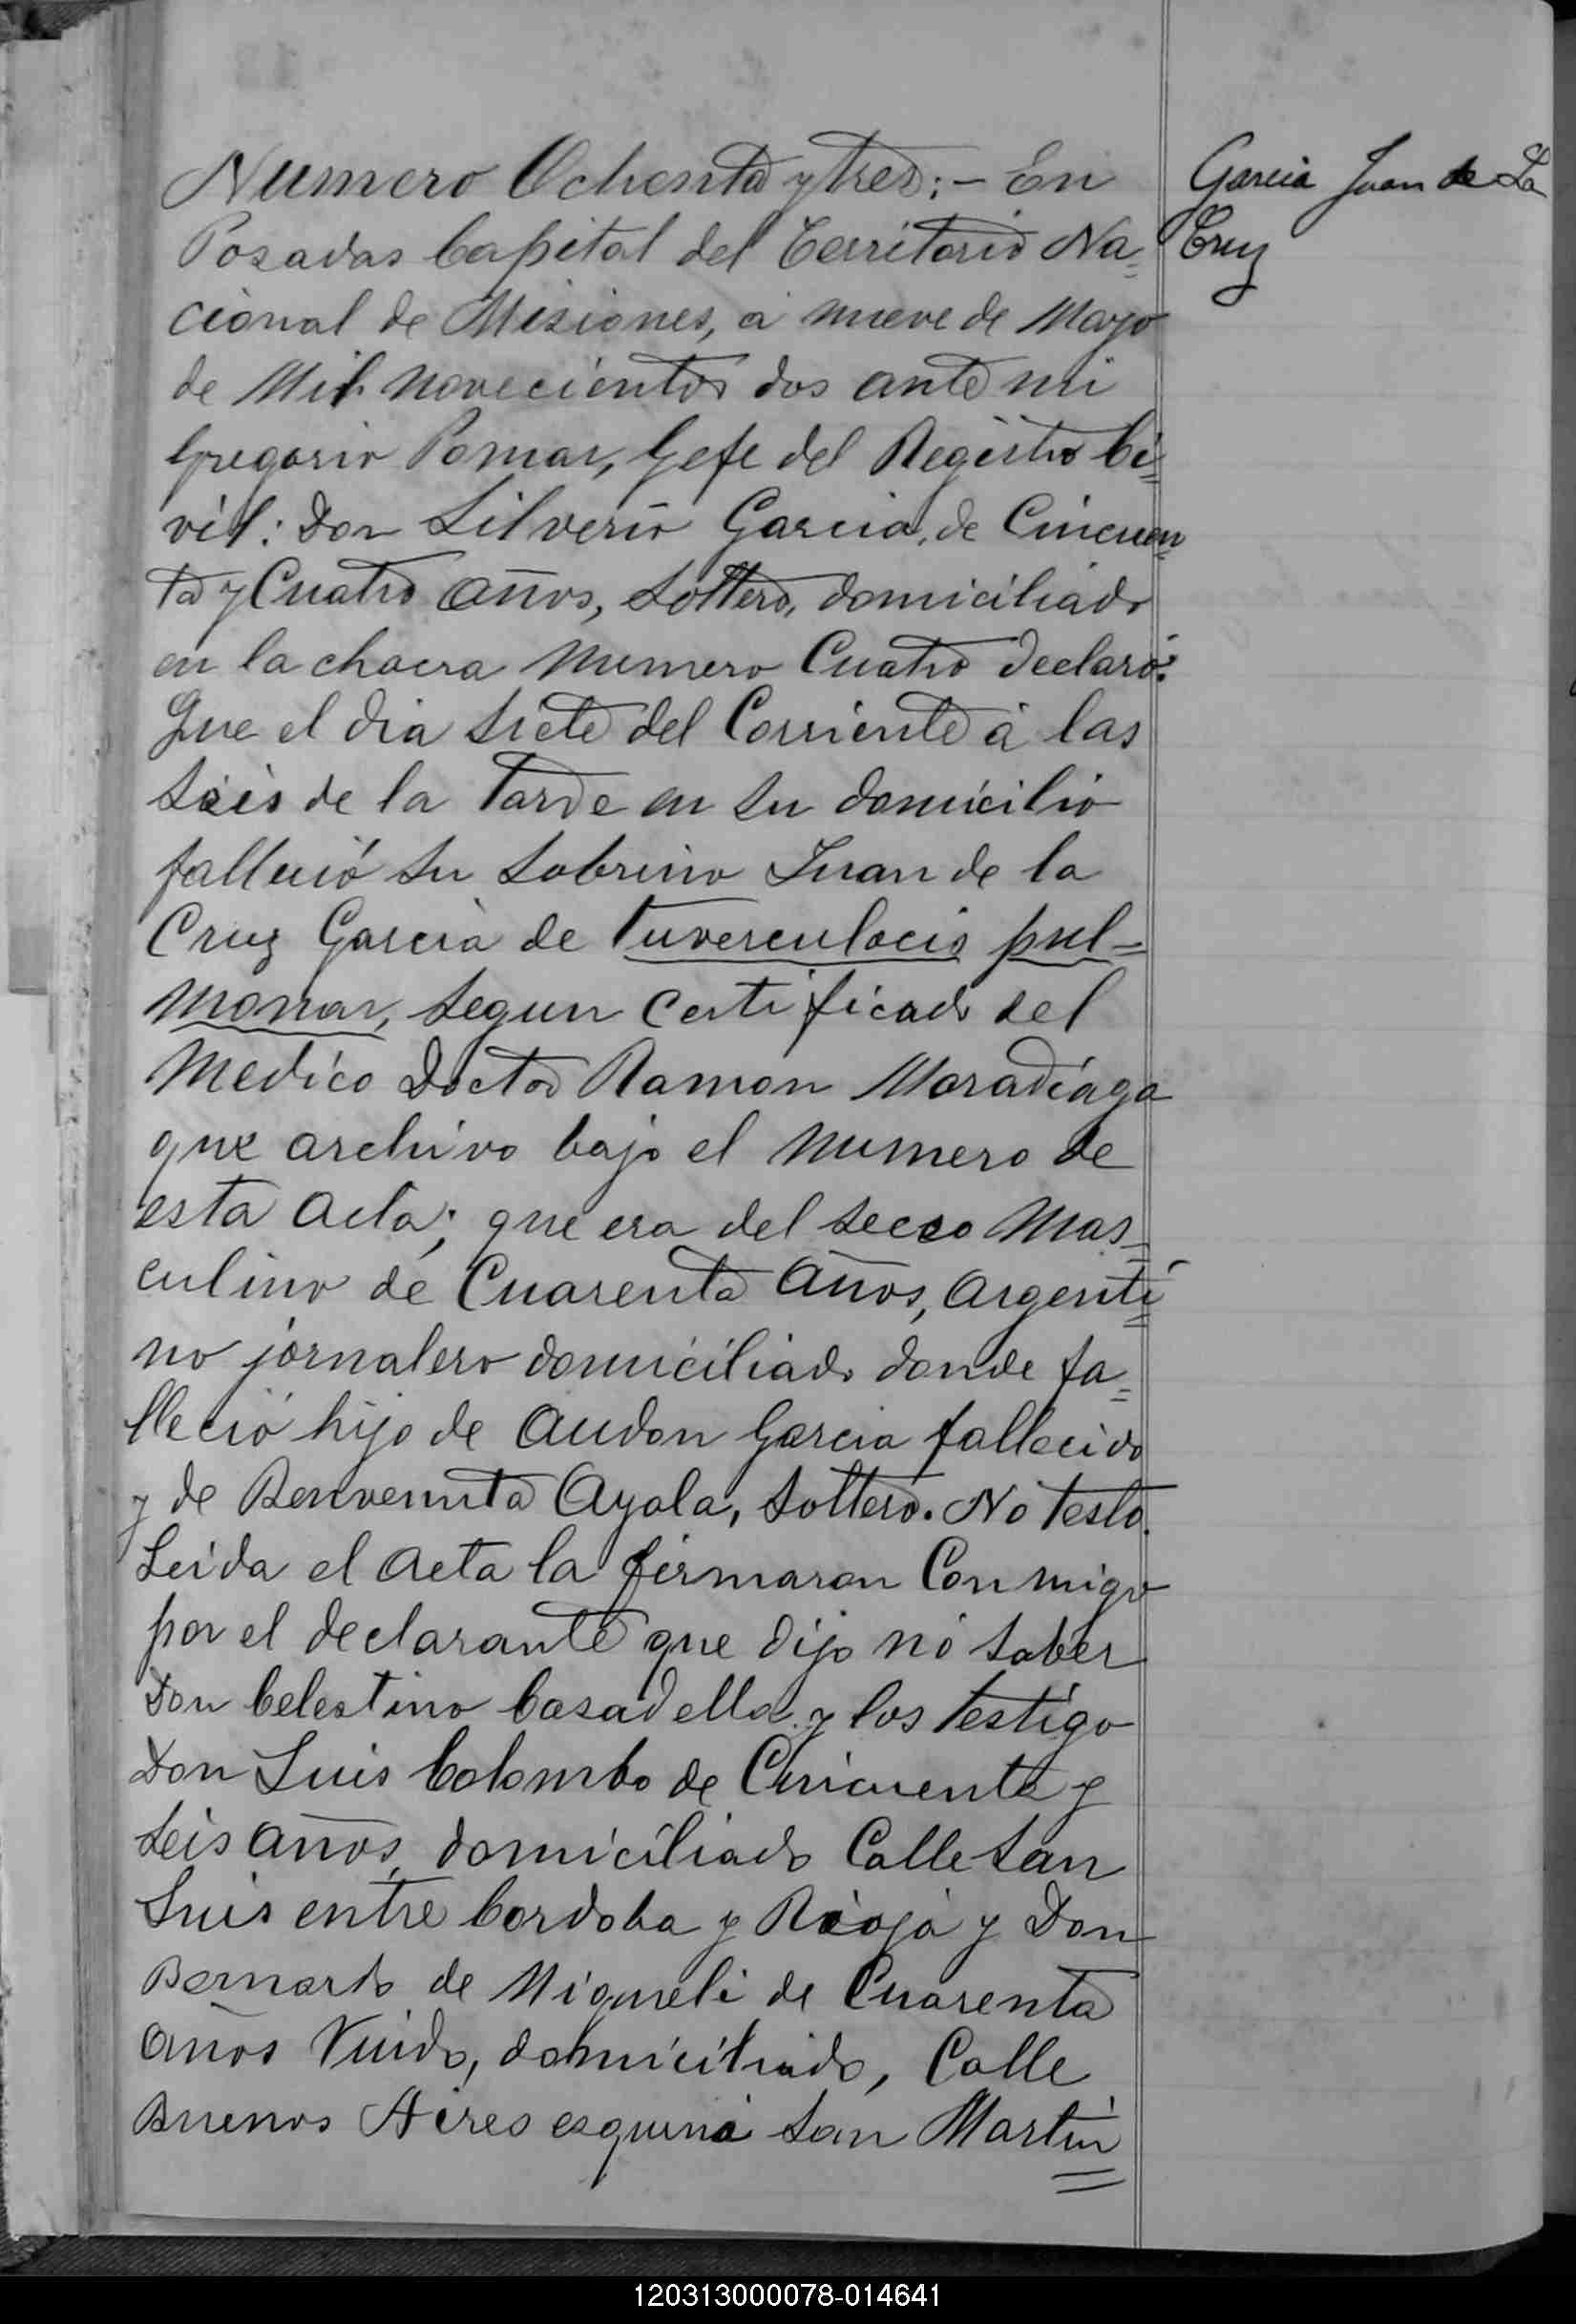 Numero Ochenta y tres:- En
Posadas Capital del Territorio Na=
cional de Misiones, á nueve de Mayo
de Mil novecientos dos ante mi
Gregorio Pomar, Gefe del Registro Ci=
vil: Don Silverio Garcia, de Cincuen=
ta y Cuatro años, soltero, domiciliado
en la chacra numero Cuatro declaró:
Que el dia siete del Corriente á las
seis de la tarde en su domicilio
falleció su sobrino Juan de la
Cruz Garcia de tuverculocis pul=
monar, segun certificado del
Medico Doctor Ramon Maradiaga
que archivo bajo el numero de
esta acta; que era del secso Mas=
culino de Cuarenta años, argenti=
no jornalero domiciliado donde fa=
lleció hijo de Audon Garcia fallecido
y de Benvenuta Ayala, soltero. No testó.
Leida el acta la firmaron Conmigo
por el declarante que dijo no saber
Don Celestino Casadella y los testigo
Don Luis Colombo de Cincuenta y
seis años, domiciliado Calle San
Luis entre Cordoba y Rioja y Don
Bernardo de Miqueli de Cuarenta
años Viudo, domiciliado, Calle
Buenos Aires esquina San Martin
Garcia Juan de La
Cruz
120313000078-014641